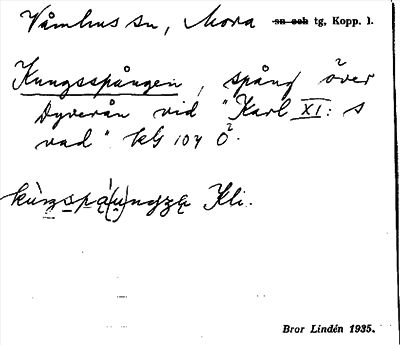 Våmhus sn, Mora sn och tg, Kopp. l.
Kungsspången, spång över
Dyverån vid "Karl XI: s
vad" kbl 104 Ö².
Kli.
Bror Lindén 1935.